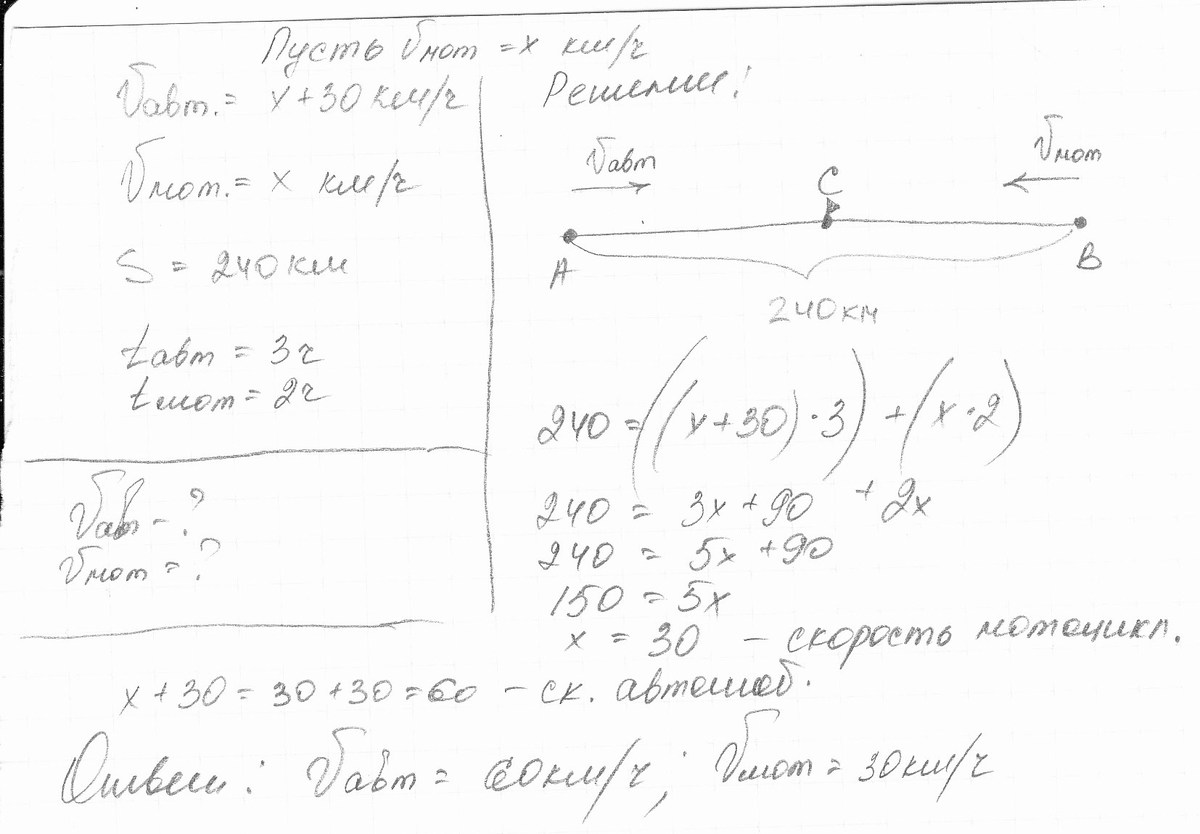 Пусть Vмот = x км/ч
Vавт. = x + 30 км/ч
Vмот. = x км/ч
S = 240 км
tавт = 3ч
tмот = 2ч
Vавт - ?
Vмот = ?
Решении:
Vавт
C
Vмот
A
B
240 км
240 = ((x + 30) · 3) + (x · 2)
240 = 3x + 90 + 2x
240 = 5x + 90
150 = 5x
x = 30 – скорость мотоцикл.
x + 30 = 30 + 30 = 60 – ск. автомоб.
Ответ: Vавт = 60 км/ч; Vмот = 30 км/ч